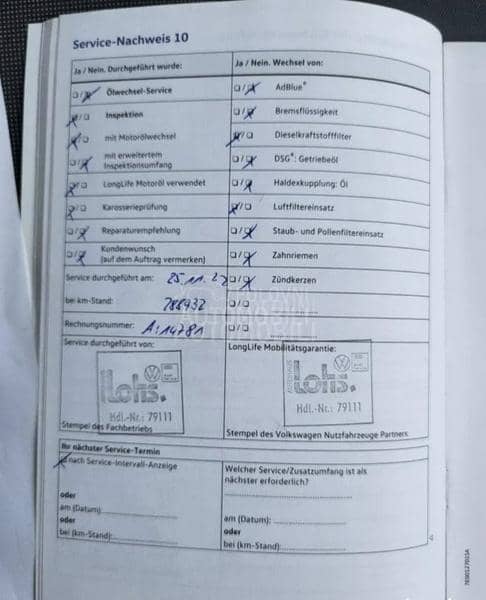 Service-Nachweis 10
Ja / Nein. Durchgeführt wurde:
Ja / Nein. Wechsel von:
Ölwechsel-Service
AdBlue®
Inspektion
Bremsflüssigkeit
mit Motorölwechsel
Dieselkraftstofffilter
mit erweitertem
Inspektionsumfang
DSG®: Getriebeöl
LongLife Motoröl verwendet
Haldexkupplung: Öl
Karosserieprüfung
Luftfiltereinsatz
Reparaturempfehlung
Staub- und Pollenfiltereinsatz
Kundenwunsch
(auf dem Auftrag vermerken)
Zahnriemen
Service durchgeführt am: 25.11.22
Zündkerzen
bei km-Stand: 288932
Rechnungsnummer: A:14781
AUTOMOBILI
Service durchgeführt von:
LongLife Mobilitätsgarantie:
Lotis.
Hdl.-Nr.: 79111
AUTOHAUS
Lotis.
Hdl.-Nr.: 79111
Stempel des Fachbetriebs
Stempel des Volkswagen Nutzfahrzeuge Partners
Ihr nächster Service-Termin
nach Service-Intervall-Anzeige
Welcher Service/Zusatzumfang ist als
nächster erforderlich?
oder
am (Datum):
oder
bei (km-Stand):
am (Datum):
oder
bei (km-Stand):